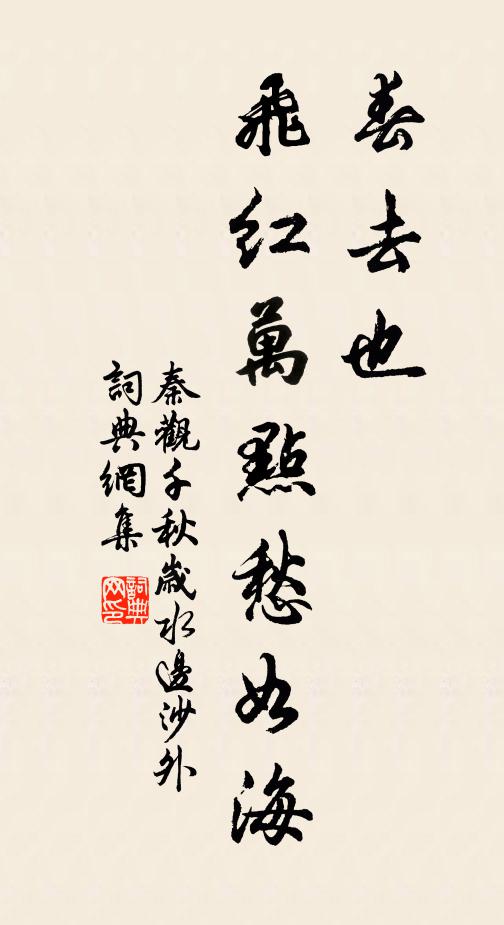 春去也
飛紅萬點愁如海
秦觀千秋歲水邊沙外
詞典網集
詞典网印